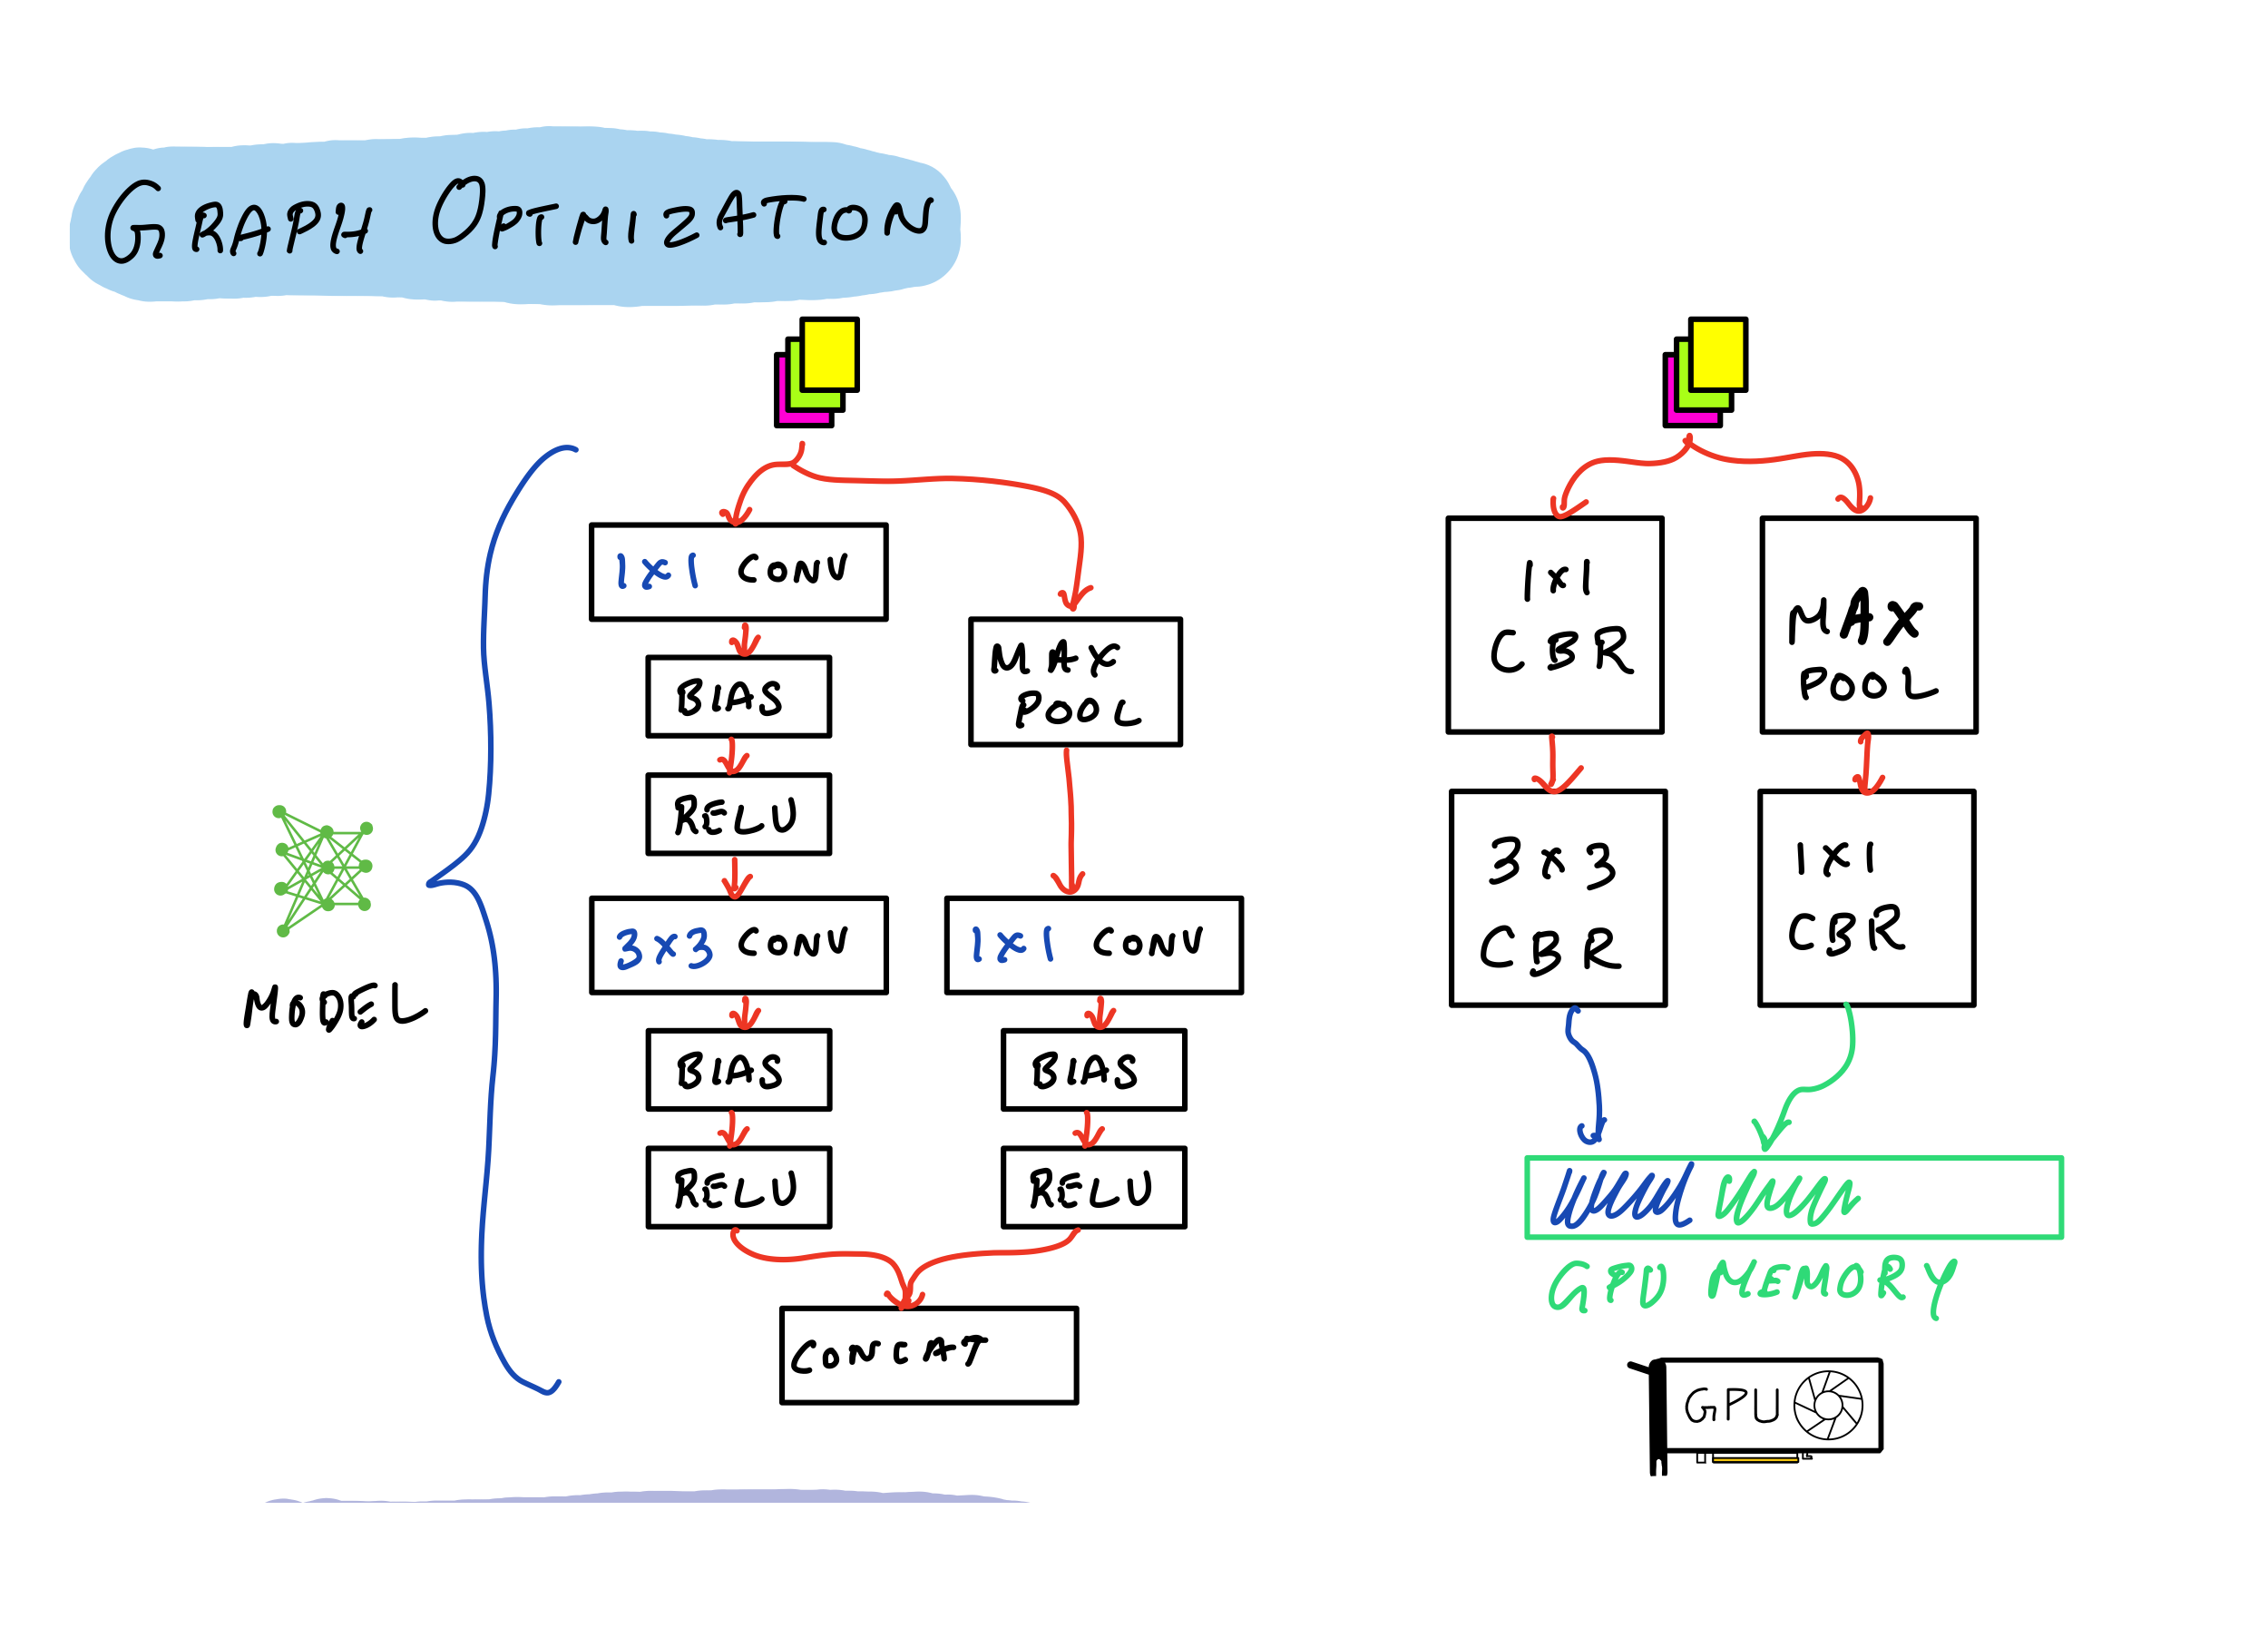 GRAPH OPTIMIZATION
1x1 CONV
BIAS
RELU
3x3 CONV
BIAS
RELU
MAX
POOL
1x1 CONV
BIAS
RELU
CONCAT
MODEL
1x1
CBR
3x3
CBR
MAX
POOL
1x1
CBR
GPU MEMORY
GPU